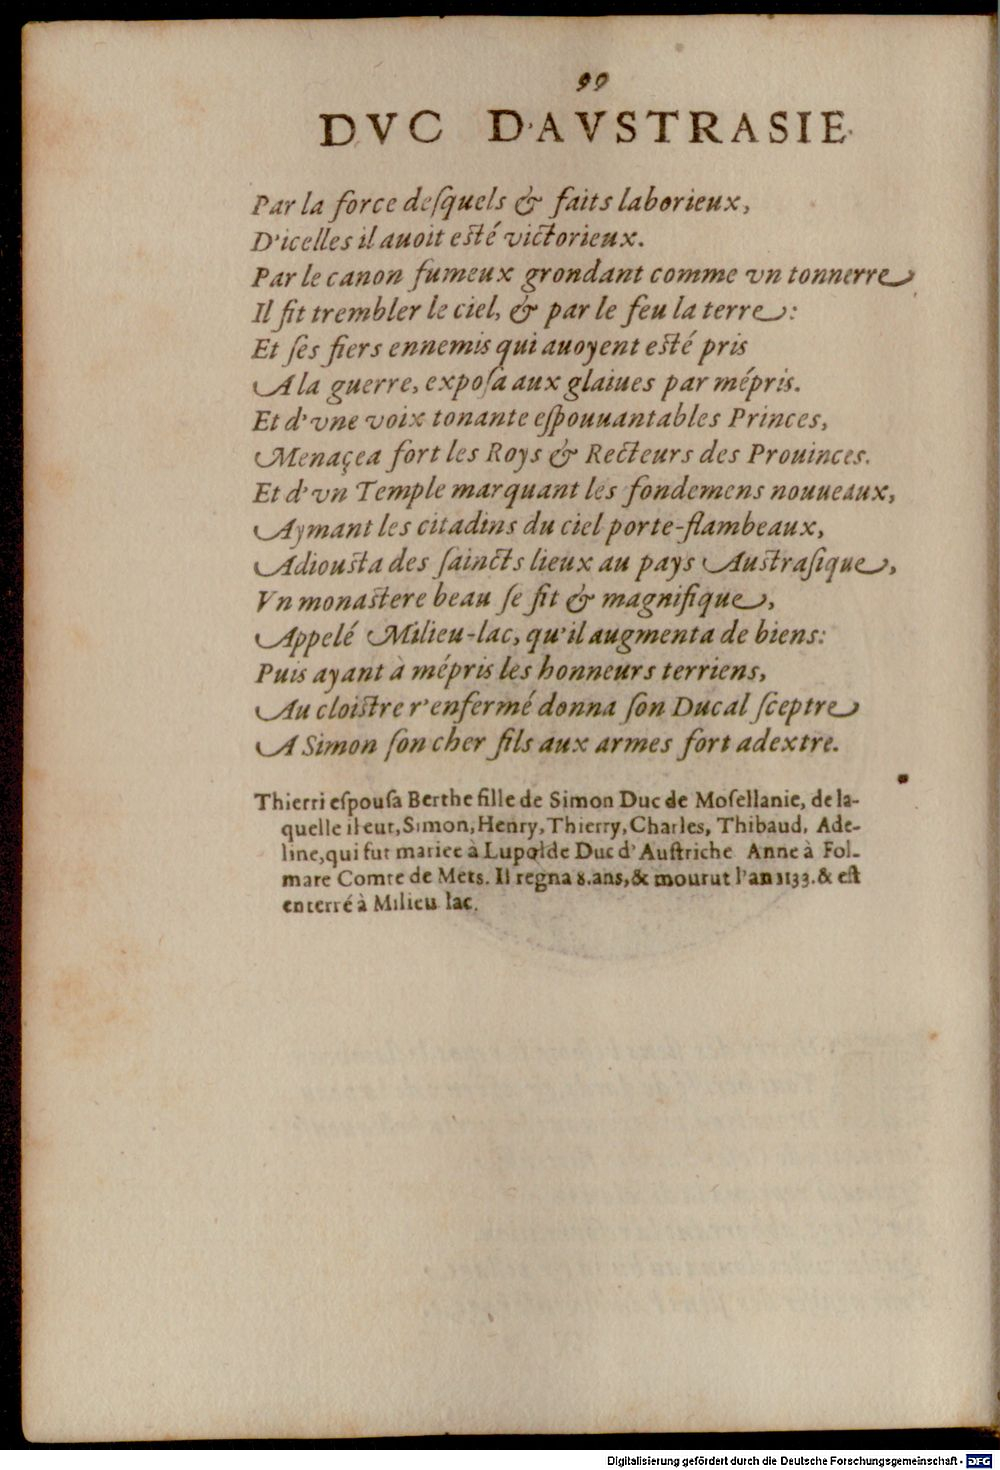 99
DVC D'AVSTRASIE.
Par la force deſquels & faits laborieux,
D'icelles il auoit esté victorieux.
Par le canon fumeux grondant comme vn tonnerre
Il fit trembler le ciel, & par le feu la terre:
Et ſes fiers ennemis qui auoyent esté pris
A la guerre, expoſa aux glaiues par mépris.
Et d'vne voix tonante eſpouuantables Princes,
Menaçea fort les Roys & Recteurs des Prouinces.
Et d'vn Temple marquant les fondemens nouueaux,
Aymant les citadins du ciel porte-flambeaux,
Adiousta des ſaincts lieux au pays Austraſique,
Vn monastere beau ſe fit & magnifique,
Appelé Milieu-lac, qu'il augmenta de biens:
Puis ayant à mépris les honneurs terriens,
Au cloistre r'enfermé donna ſon Ducal ſceptre
A Simon ſon cher fils aux armes fort adextre.
Thierri eſpouſa Berthe fille de Simon Duc de Moſellanie, de la-
quelle il eut, Simon, Henry, Thierry, Charles, Thibaud, Ade-
line, qui fut mariee à Lupolde Duc d'Auſtriche Anne à Fol-
mare Comte de Mets. Il regna 8. ans, & mourut l'an 1133. & eſt
enterré à Milieu lac.
Digitalisierung gefördert durch die Deutsche Forschungsgemeinschaft - DFG